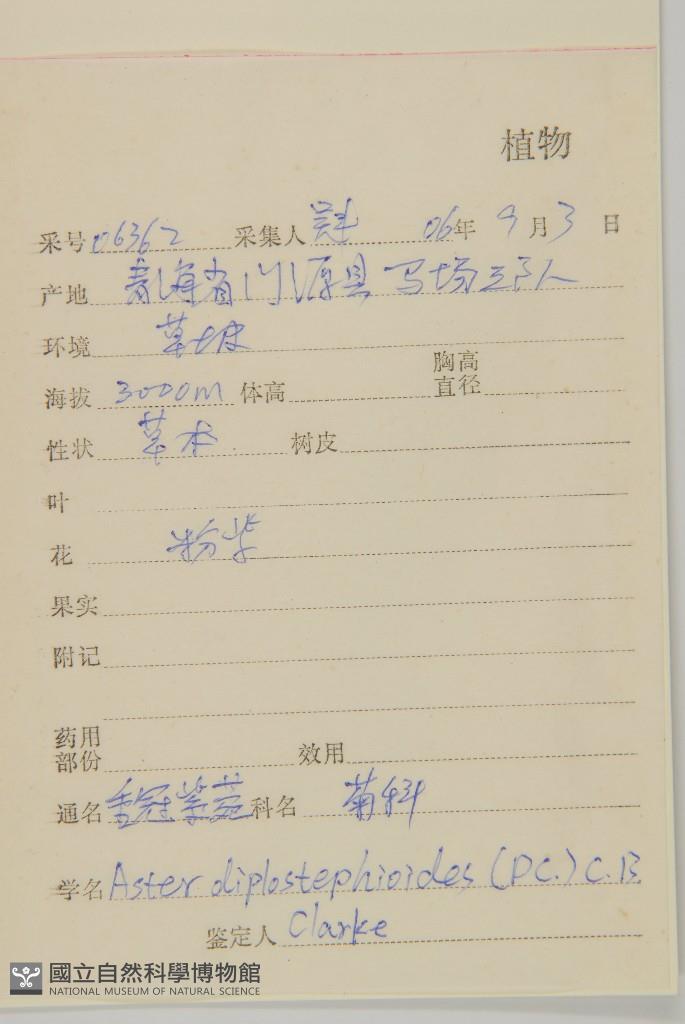 植物
采号 06362 采集人 06年 9月3日
产地 青海省门源县马场
环境 草坡
海拔 3000m 体高 胸高直径
性状 草本 树皮
叶
花 粉紫
果实
附记
药用部份 效用
通名 重冠紫菀 科名 菊科
学名 Aster diplostephioides (DC.) C.B.
鉴定人 Clarke
國立自然科學博物館
NATIONAL MUSEUM OF NATURAL SCIENCE